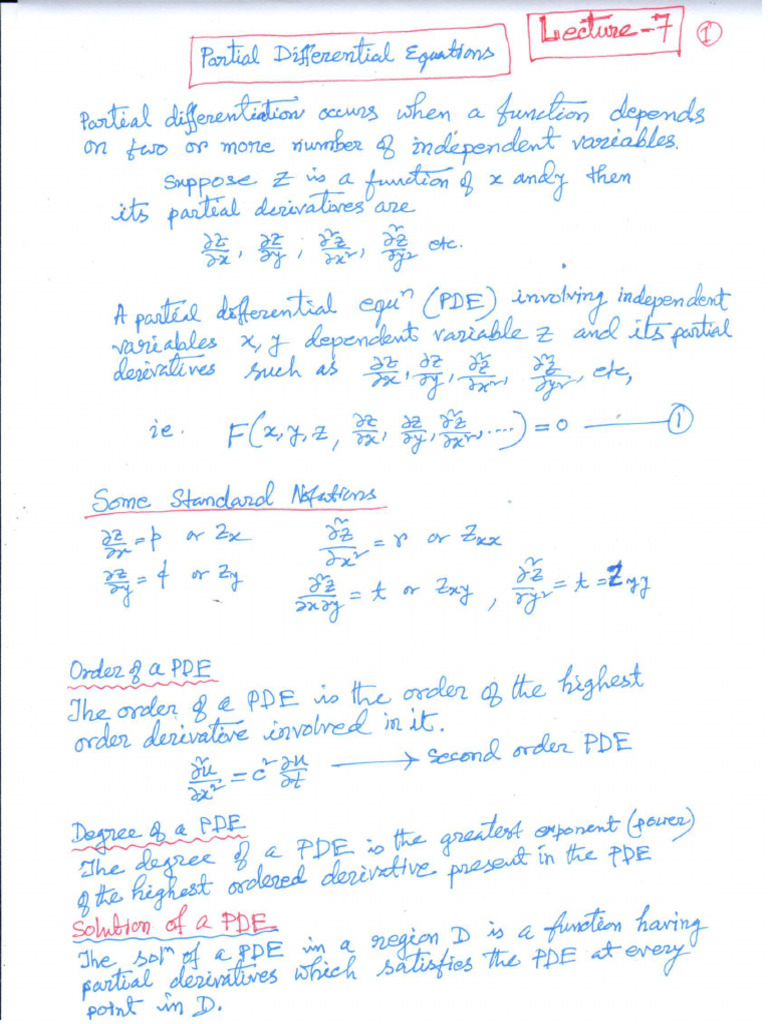 Lecture-7 ①
Partial Differential Equations
Partial differentiation occurs when a function depends
on two or more number of independent variables.
Suppose z is a function of x and y then
its partial derivatives are
∂z/∂x, ∂z/∂y, ∂²z/∂x², ∂²z/∂y² etc.
A partial differential equⁿ (PDE) involving independent
variables x, y dependent variable z and its partial
derivatives such as ∂z/∂x, ∂z/∂y, ∂²z/∂x², ∂²z/∂y², etc,
ie. F(x, y, z, ∂z/∂x, ∂z/∂y, ∂²z/∂x², ....) = 0 —— ①
Some Standard Notations
∂z/∂x = p or Zx ∂²z/∂x² = r or Zxx
∂z/∂y = q or Zy ∂²z/∂x∂y = t or Zxy, ∂²z/∂y² = t = Zyy
Order of a PDE
The order of a PDE is the order of the highest
order derivative involved in it.
∂²u/∂x² = c² ∂u/∂t ⟶ Second order PDE
Degree of a PDE
The degree of a PDE is the greatest exponent (power)
of the highest ordered derivative present in the PDE
Solution of a PDE
The solⁿ of a PDE in a region D is a function having
partial derivatives which satisfies the PDE at every
point in D.